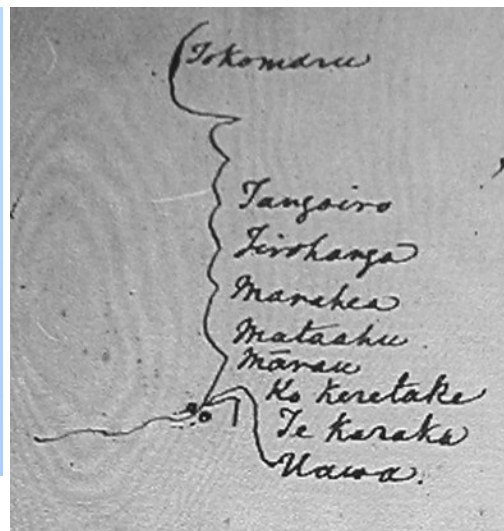 Tokomaru
Tangoiro
Tirohanga
Marahea
Mataahu
Mārau
Ko Keretake
Te Karaka
Uawa.